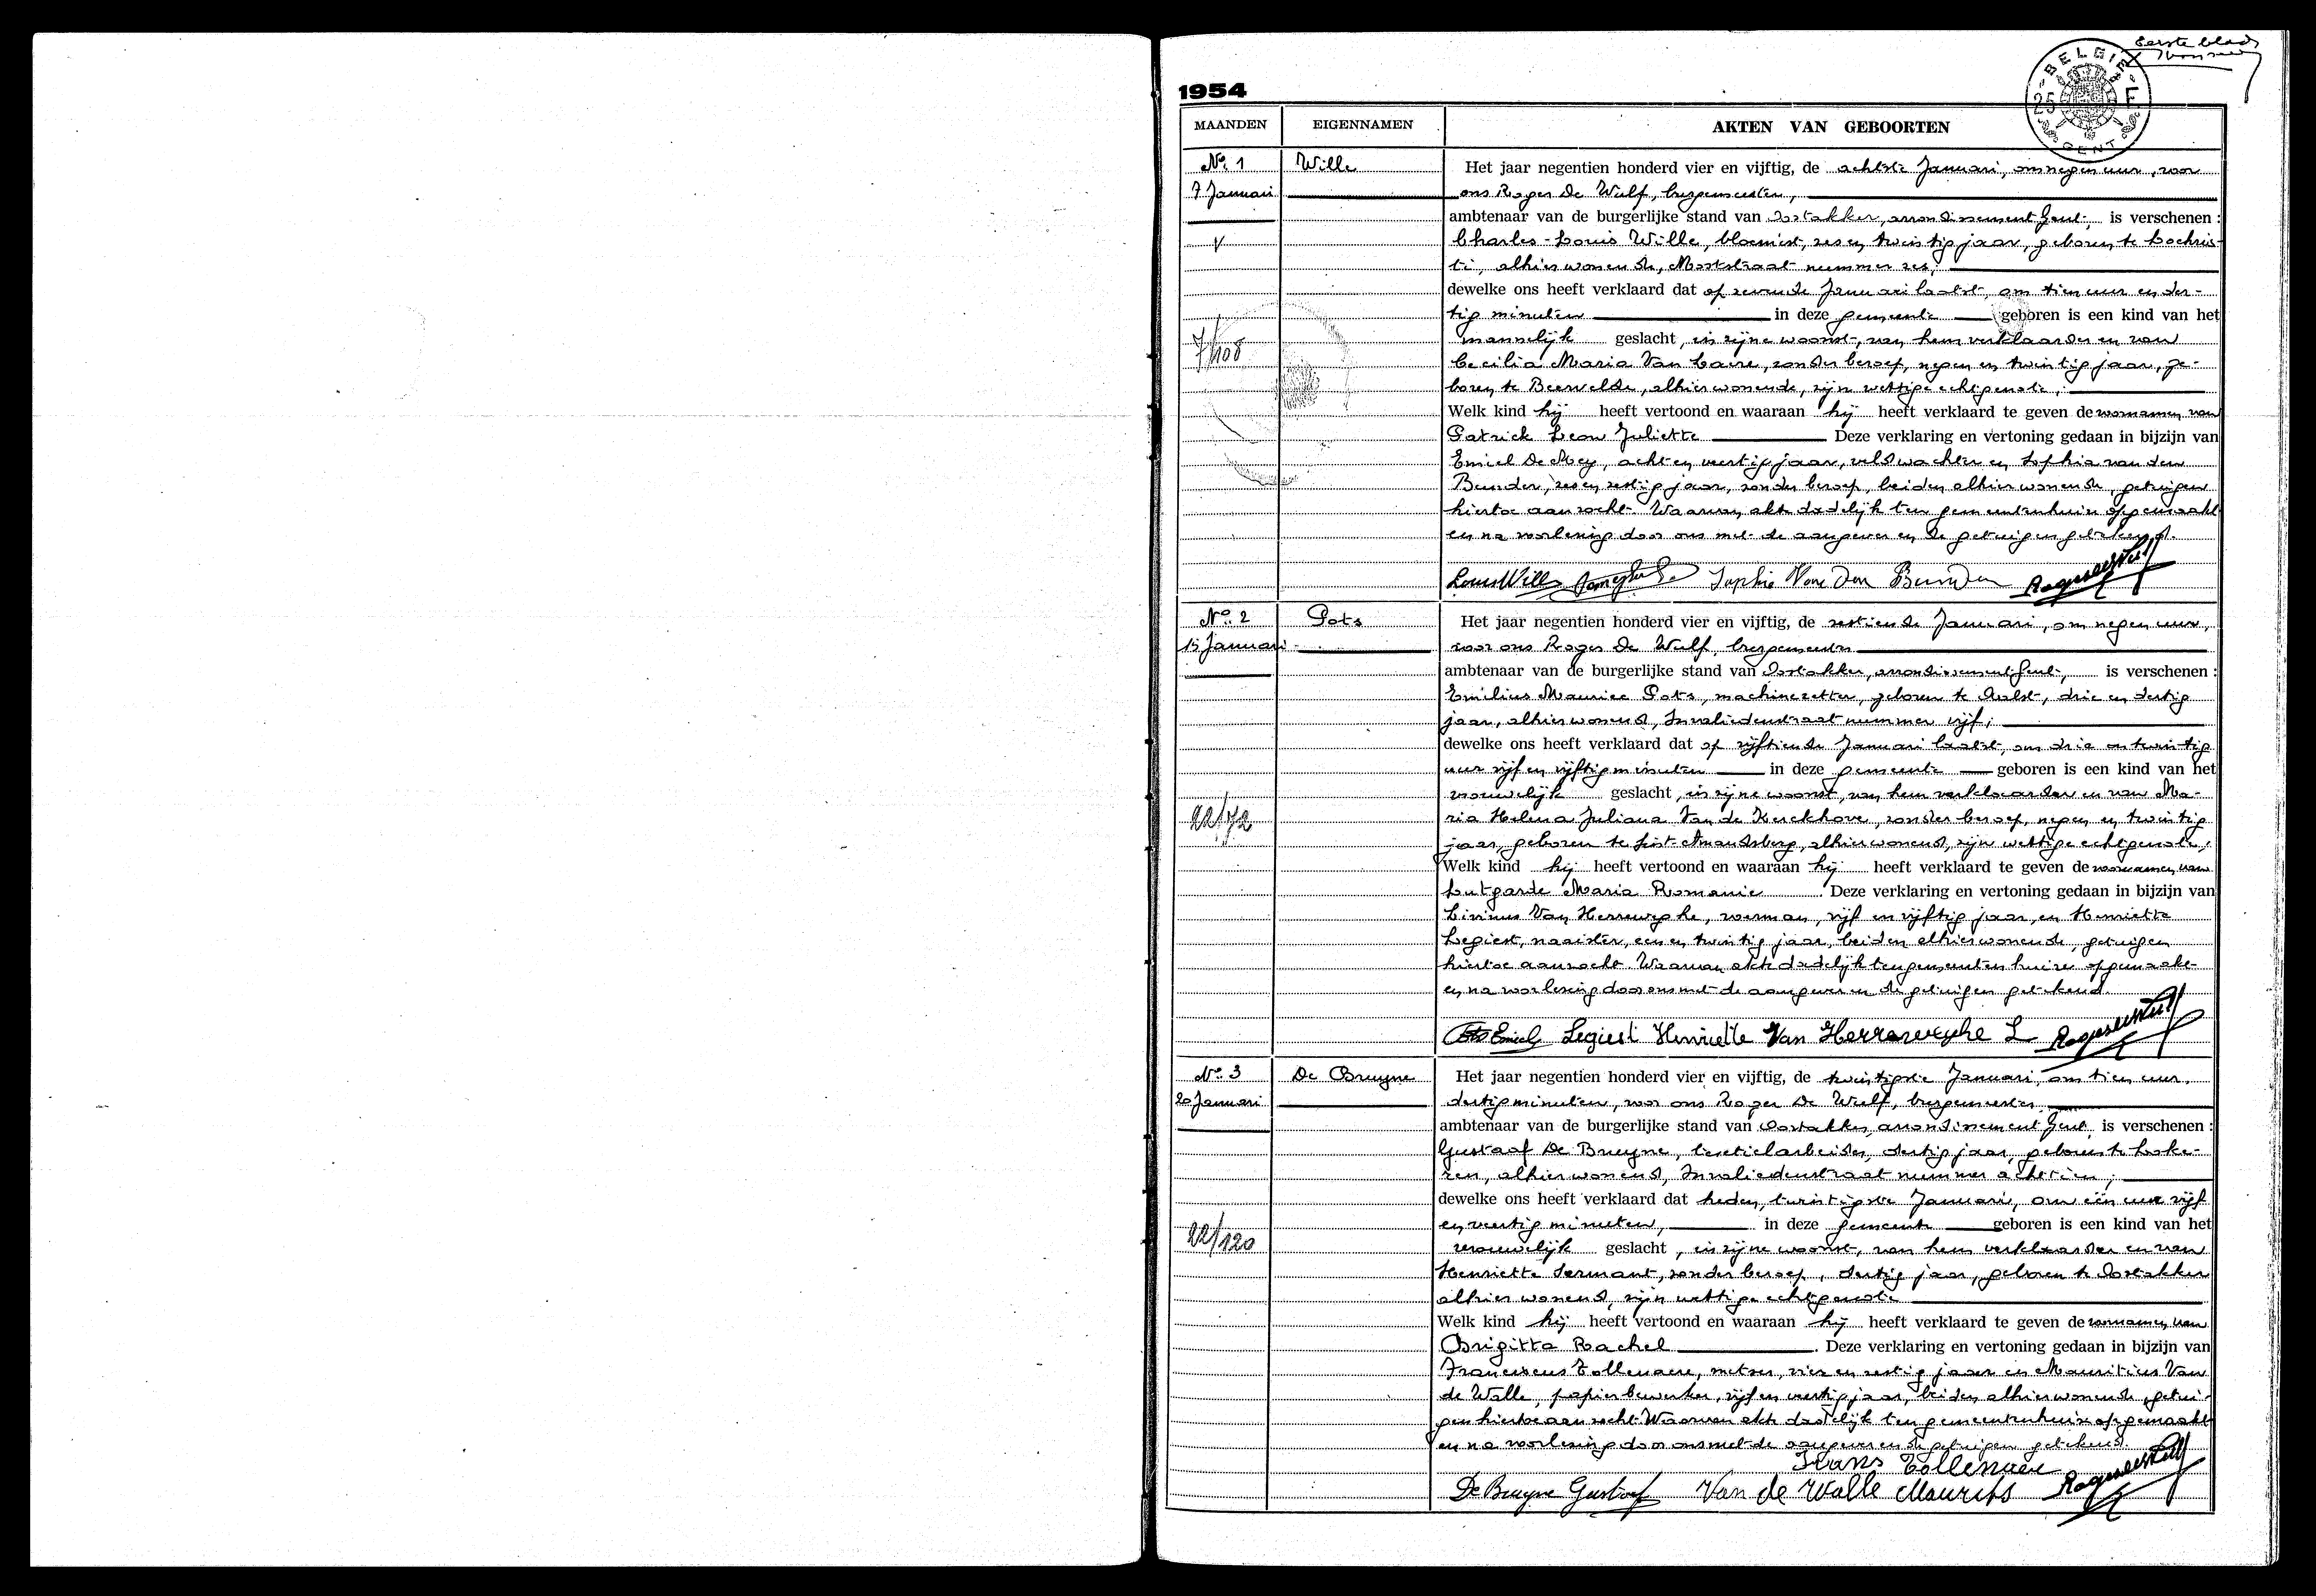 Eerste blad
1954
BELGIE
25 F
GENT
MAANDEN EIGENNAMEN AKTEN VAN GEBOORTEN
No. 1 Wille
7 Januari
V
7/108
Het jaar negentien honderd vier en vijftig, de achtste Januari, om negen uur, voor
ons Roger De Wulf, burgemeester,
ambtenaar van de burgerlijke stand van Oostakker, arrondissement Gent, is verschenen :
Charles-Louis Wille, bloemist, zes en twintig jaar, geboren te Lochris-
ti, alhier wonende, Meststraat nummer zes;
dewelke ons heeft verklaard dat op zevende Januari laatst, om tien uur en der-
tig minuten in deze gemeente geboren is een kind van het
mannelijk geslacht, in zijne woonst, van hem verklaarder en van
Cecilia Maria Van Laere, zonder beroep, negen en twintig jaar, ge-
boren te Beervelde, alhier wonende, zijn wettige echtgenote;
Welk kind hij heeft vertoond en waaraan hij heeft verklaard te geven de voornamen van
Patrick Leon Juliette Deze verklaring en vertoning gedaan in bijzijn van
Emiel De Mey, acht en veertig jaar, veldwachter en Sophia van den
Bunder, zes en zestig jaar, zonder beroep, beiden alhier wonende, getuigen
hiertoe aanzocht. Waarvan akte dadelijk ten gemeentenhuize opgemaakt
en na voorlezing door ons met de aangever en de getuigen getekend.
Louis Wille Sophie Van Den Bunder Roger De Wulf
No. 2 Pots
15 Januari
22/72
Het jaar negentien honderd vier en vijftig, de zestiende Januari, om negen uur,
voor ons Roger De Wulf, burgemeester
ambtenaar van de burgerlijke stand van Oostakker, arrondissement Gent, is verschenen :
Emilius Maurice Pots, machinezetter, geboren te Aalst, drie en dertig
jaar, alhier wonend, Invaliedenstraat nummer vijf;
dewelke ons heeft verklaard dat op vijftiende Januari laatst, om drie en twintig
uur vijf en vijftig minuten in deze gemeente geboren is een kind van het
vrouwelijk geslacht, in zijne woonst, van hem verklaarder en van Ma-
ria Helena Juliana Van de Kerckhove, zonder beroep, negen en twintig
jaar, geboren te Sint-Amandsberg, alhier wonend, zijn wettige echtgenote;
Welk kind hij heeft vertoond en waaraan hij heeft verklaard te geven de voornamen van
Lutgarde Maria Romanie Deze verklaring en vertoning gedaan in bijzijn van
Livinus Van Herreweghe, voerman, vijf en vijftig jaar, en Henriette
Legiest, naaister, een en twintig jaar, beiden alhier wonende, getuigen
hiertoe aanzocht. Waarvan akte dadelijk ten gemeentenhuize opgemaakt
en na voorlezing door ons met de aangever en de getuigen getekend.
Pots Emiel Legiest Henriette Van Herreweghe L Roger De Wulf
No. 3 De Bruyne
20 Januari
22/120
Het jaar negentien honderd vier en vijftig, de twintigste Januari, om tien uur
dertig minuten, voor ons Roger De Wulf, burgemeester
ambtenaar van de burgerlijke stand van Oostakker, arrondissement Gent, is verschenen :
Gustaaf De Bruyne, textielarbeider, dertig jaar, geboren te Loke-
ren, alhier wonend, Invaliedenstraat nummer achttien;
dewelke ons heeft verklaard dat heden, twintigste Januari, om één uur vijf
en veertig minuten, in deze gemeente geboren is een kind van het
vrouwelijk geslacht, in zijne woonst, van hem verklaarder en van
Henriette Sermant, zonder beroep, dertig jaar, geboren te Oostakker
alhier wonend, zijn wettige echtgenote
Welk kind hij heeft vertoond en waaraan hij heeft verklaard te geven de voornamen van
Brigitta Rachel . Deze verklaring en vertoning gedaan in bijzijn van
Franciscus Tollenaere, metser, vier en zestig jaar en Mauritius Van
de Walle, papierbewerker, vijf en veertig jaar, beiden alhier wonende, getui-
gen hiertoe aanzocht. Waarvan akte dadelijk ten gemeentenhuize opgemaakt
en na voorlezing door ons met de aangever en de getuigen getekend.
Frans Tollenaere
De Bruyne Gustaaf Van de Walle Maurits Roger De Wulf